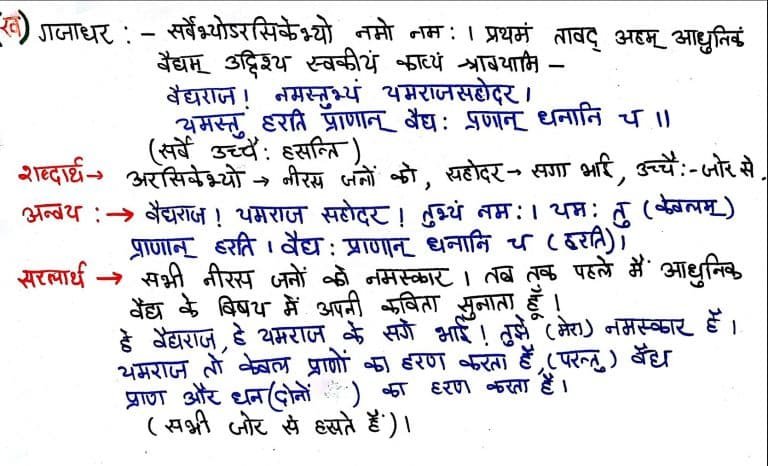 (ख) गजाधर : - सर्वेभ्योऽरसिकेभ्यो नमो नम: । प्रथमं तावद् अहम् आधुनिकं
वैद्यम् उद्दिश्य स्वकीयं काव्यं श्रावयामि -
वैद्यराज ! नमस्तुभ्यं यमराजसहोदर ।
यमस्तु हरति प्राणान् वैद्य: प्रणान् धनानि च ॥
(सर्वे उच्चै: हसन्ति)
शब्दार्थ→ अरसिकेभ्यो → नीरस जनों को, सहोदर→ सगा भाई, उच्चै:- जोर से.
अन्वय :→ वैद्यराज ! यमराज सहोदर ! तुभ्यं नम: । यम: तु (केवलम्)
प्राणान् हरति । वैद्य : प्राणान् धनानि च (हरति)।
सरलार्थ → सभी नीरस जनों को नमस्कार । तब तक पहले मैं आधुनिक
वैद्य के विषय में अपनी कविता सुनाता हूँ ।
हे वैद्यराज, हे यमराज के सगे भाई ! तुझे (मेरा) नमस्कार हैं ।
यमराज तो केवल प्राणों का हरण करता हैं, (परन्तु) वैद्य
प्राण और धन(दोनों ) का हरण करता हैं ।
(सभी जोर से हसते हैं)।